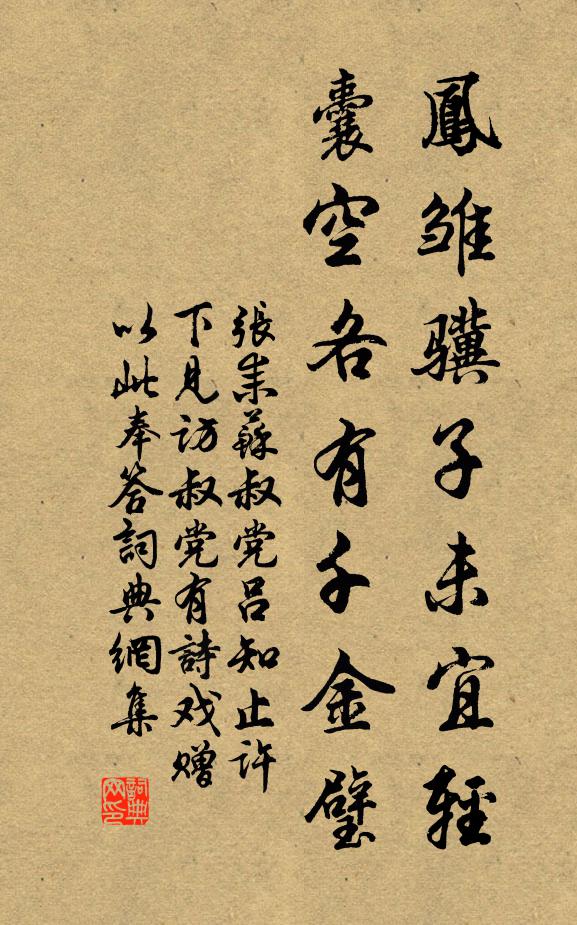 鳳雏骥子未宜輕
囊空各有千金璧
張耒蘇叔党吕知止許
下見訪叔党有詩戏赠
以此奉答詞典網集
詞典网印